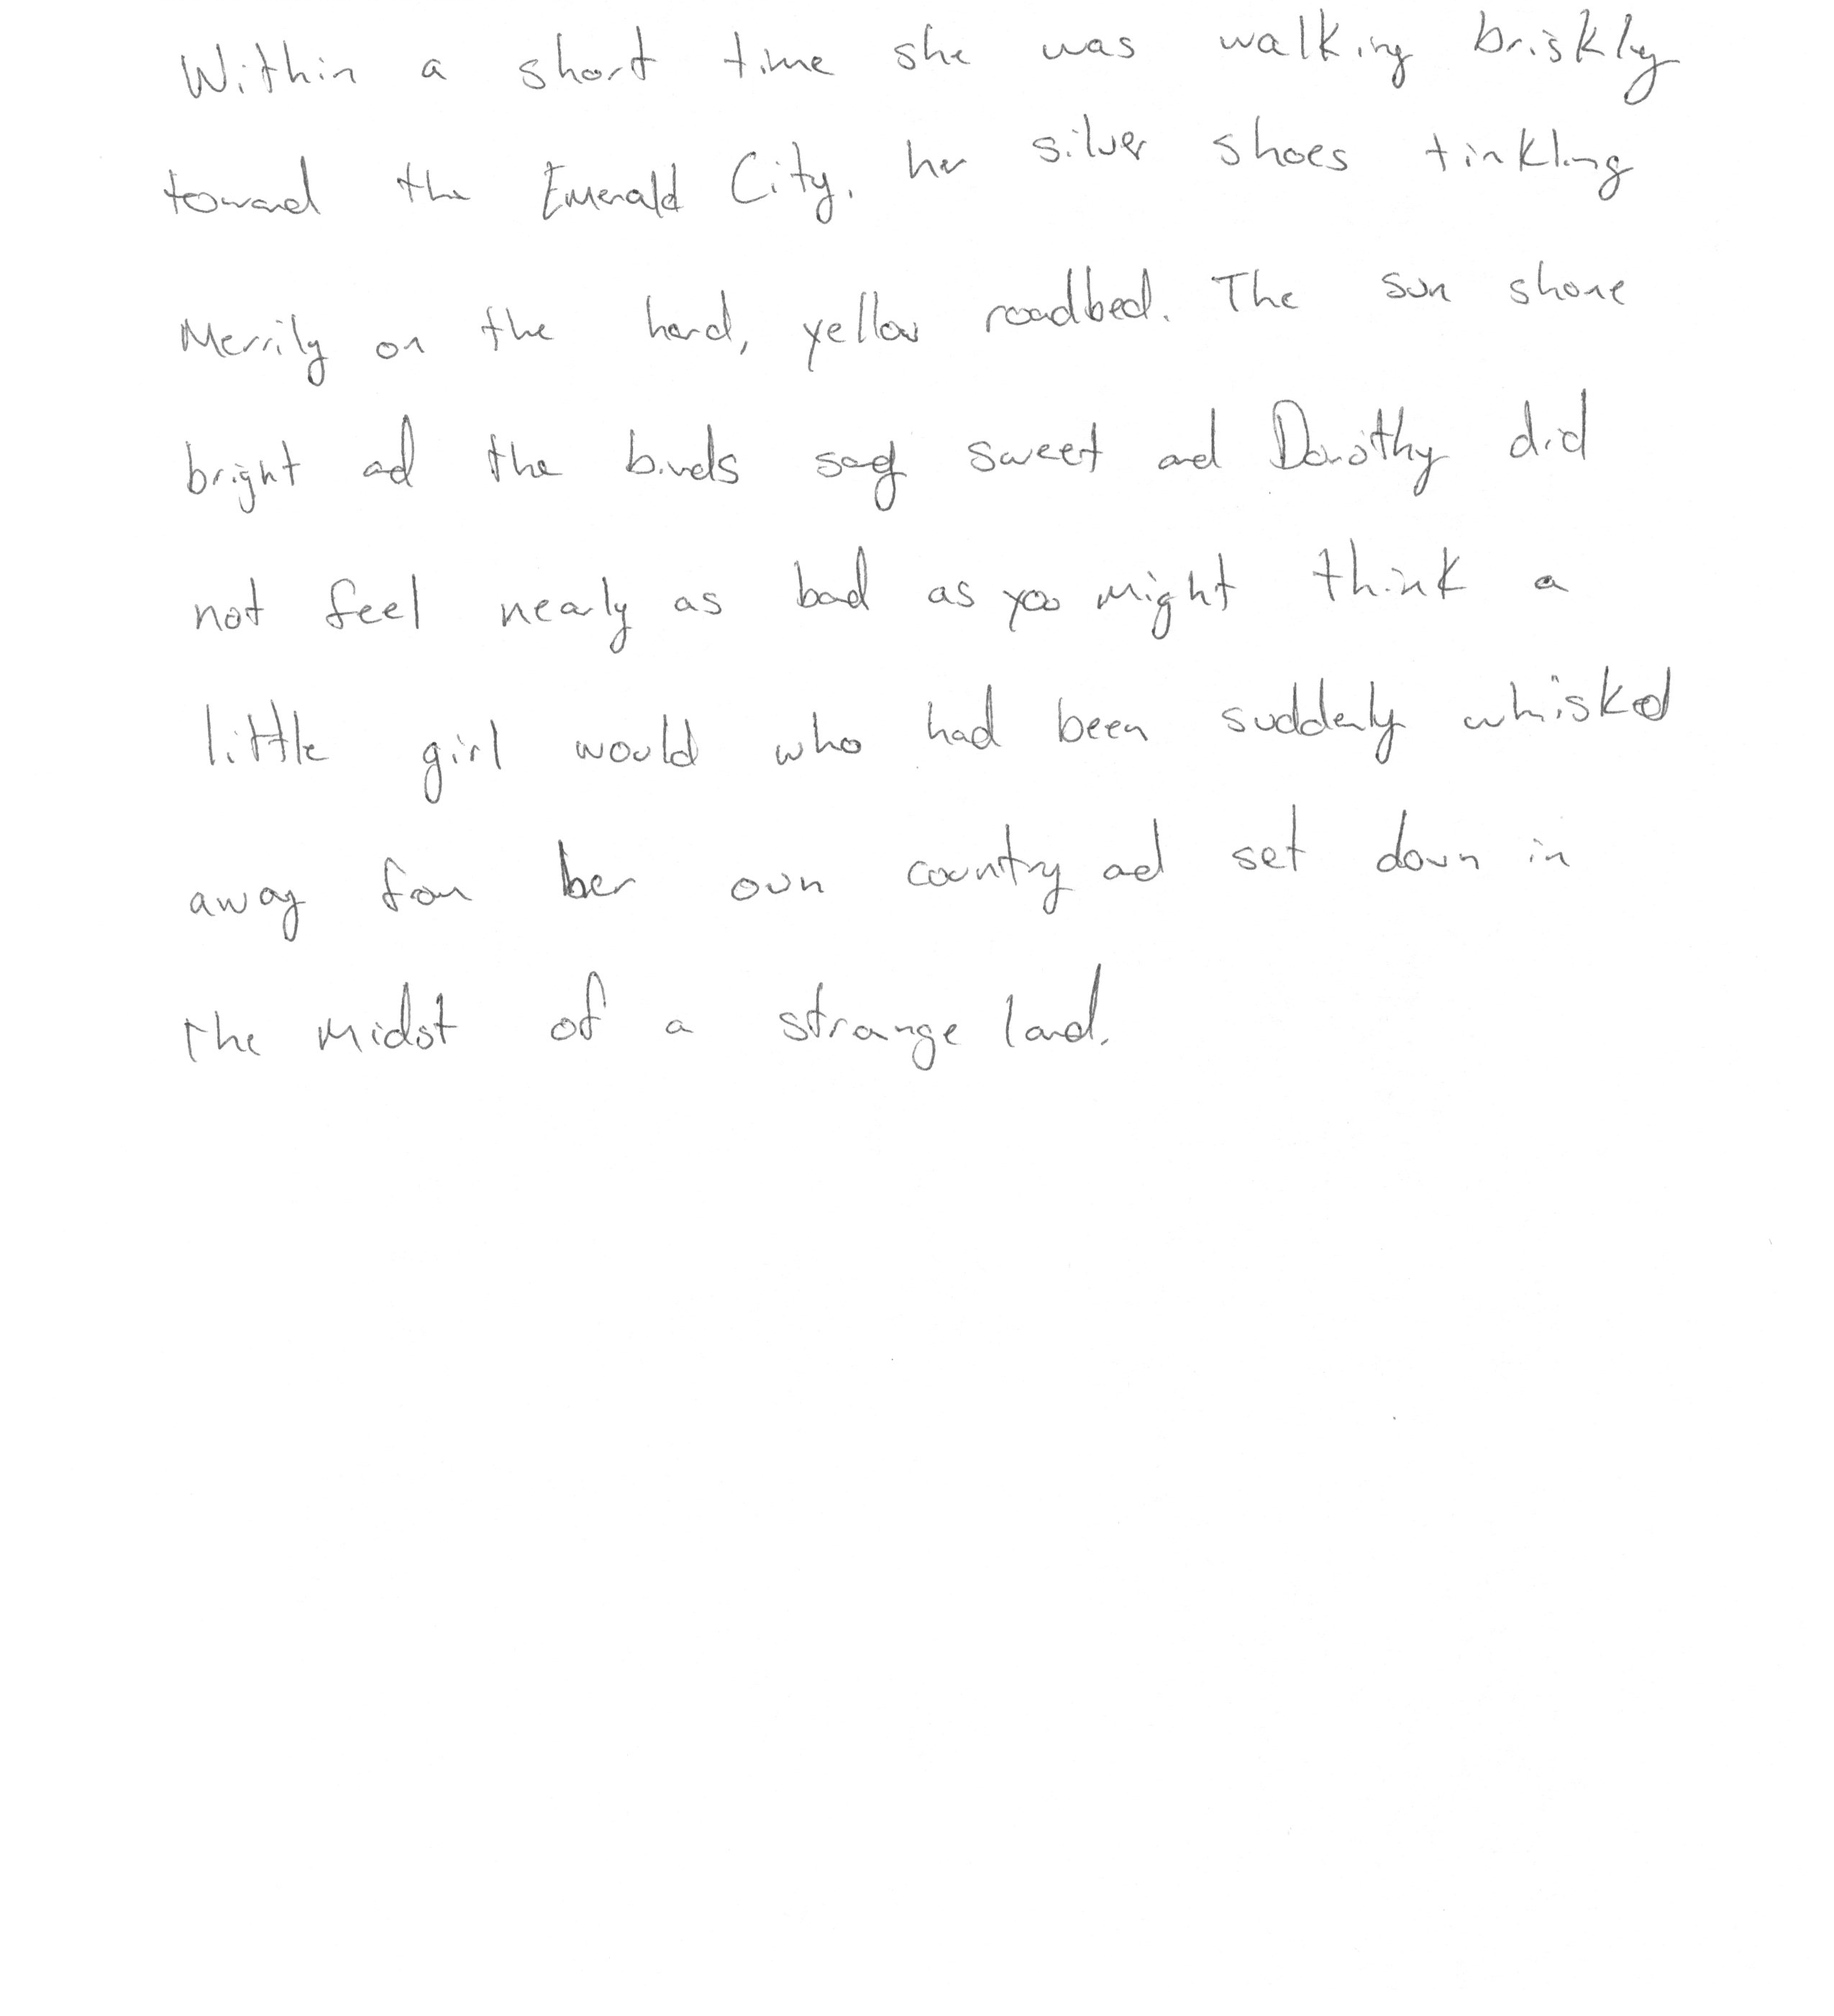 Within a short time she was walking briskly
toward the Emerald City, her silver shoes tinkling
Merrily on the hard, yellow roadbed. The sun shone
bright and the birds sang sweet and Dorothy did
not feel nearly as bad as you might think a
little girl would who had been suddenly whisked
away from her own country and set down in
the midst of a strange land.